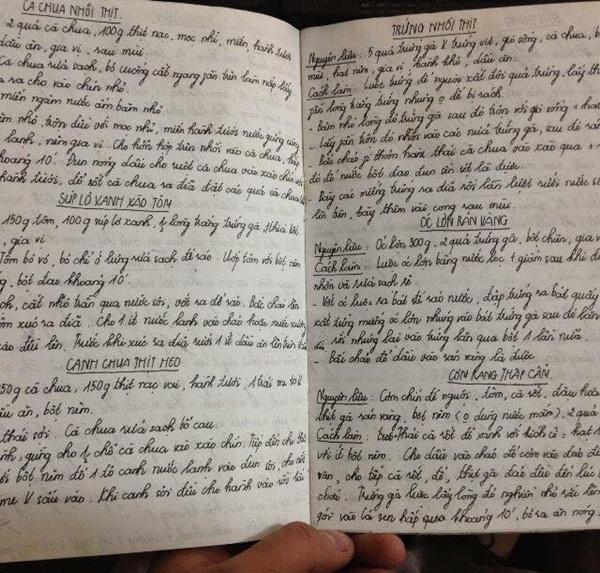 CÀ CHUA NHỒI THỊT
2 quả cà chua, 100g thịt nạc, mọc nhĩ, miến, hành tươi
dầu ăn, gia vị, rau mùi.
Cà chua rửa sạch, bỏ cuống cắt ngang gần trên làm nắp lấy
ra cho vào chín nhỏ.
miến ngâm nước ấm băm nhỏ.
băm nhỏ, trộn đều với mọc nhĩ, miến hành tươi nước gừng cùng
lanh, nêm gia vị. Cho hỗn hợp trên nhồi vào cà chua, hấp
khoảng 10'. Đun nóng dầu cho ruột cà chua vào xào chín với
hành tươi, đổ sốt cà chua ra đĩa đặt các quả cà chua
SÚP LƠ XANH XÀO TÔM
150g tôm, 100g súp lơ xanh, 1 lòng trắng trứng gà, thìa bột
, gia vị
Tôm bỏ vỏ, bỏ chỉ ở lưng rửa sạch để ráo. Ướp tôm với bột, nêm
, bột đao khoảng 10'
cắt nhỏ trần qua nước sôi, vớt ra để ráo. Bắc chảo lên
xúc ra đĩa. Cho 1 ít nước lạnh vào chảo hoặc nước xương
đều lên. Trước khi xúc ra đĩa rưới 1 ít dầu ăn lên trên
CANH CHUA THỊT HEO
50g cà chua, 150g thịt nạc vai, hành tươi, 1 trái me
dầu ăn, bột nêm.
thái sợi. Cà chua rửa sạch bổ cau.
hành, gừng cho 1/2 chỗ cà chua vào xào chín. Tiếp đến cho thịt
với bột nêm đổ 1 tô canh nước lạnh vào đun sôi, cho nốt
me V sấu vào. Khi canh sôi đều cho hành vào sôi lại
TRỨNG NHỒI THỊT
Nguyên liệu: 5 quả trứng gà V trứng vịt, giò sống, cà chua, b
mùi, hạt nêm, gia vị, hành khô, dầu ăn.
Cách làm: Luộc trứng để nguội cắt đôi quả trứng, lấy th
gần lòng trắng trứng nhưng ọ để bị rách.
- Băm nhỏ lòng đỏ trứng gà sau đó trộn với giò sống + hành
- Lấy phần trộn đó nhồi vào các nửa trứng gà, sau đó rán
- Bắc chảo phi thơm hành thái cà chua vào xào qua + 1
đó đổ nước bột đao đun sìn sệt là được.
- Bày các miếng trứng ra đĩa rồi lần lượt rưới nước s
lên trên, bày thêm vài cọng rau mùi.
ỐC LỚN RÁN VÀNG
Nguyên liệu: Ốc lớn 300g, 2 quả trứng gà, bột chiên, gia v
Cách làm: Luộc ốc lớn bằng nước lọc + giấm sau khi đã
nhờn và rửa sạch sẽ.
- Vớt ốc luộc ra bát để ráo nước, đập trứng ra bát quấy
xắt từng miếng ốc lớn nhúng vào bát trứng gà sau đó lăn
rồi nhúng lại vào trứng lăn qua bột 1 lần nữa.
- Bắc chảo đổ dầu vào rán vàng là được
CƠM RANG THẬP CẨM
Nguyên liệu: Cơm chín để nguội, tôm, cà rốt, đậu hoà
thịt gà rán vàng, bột nêm (ọ dùng nước mắm), 2 quả
Cách làm: Thái cà rốt đỗ xanh với kích cỡ hạt
với ít bột nêm. Cho dầu vào chảo đổ cơm vào đảo đều
vàng, cho tiếp cà rốt, đỗ, thịt gà đảo đều đến lúc
chảo. Trứng gà luộc lấy lòng đỏ nghiền nhỏ rắc lên
gói vào lá sen hấp qua khoảng 10', bỏ ra ăn nóng